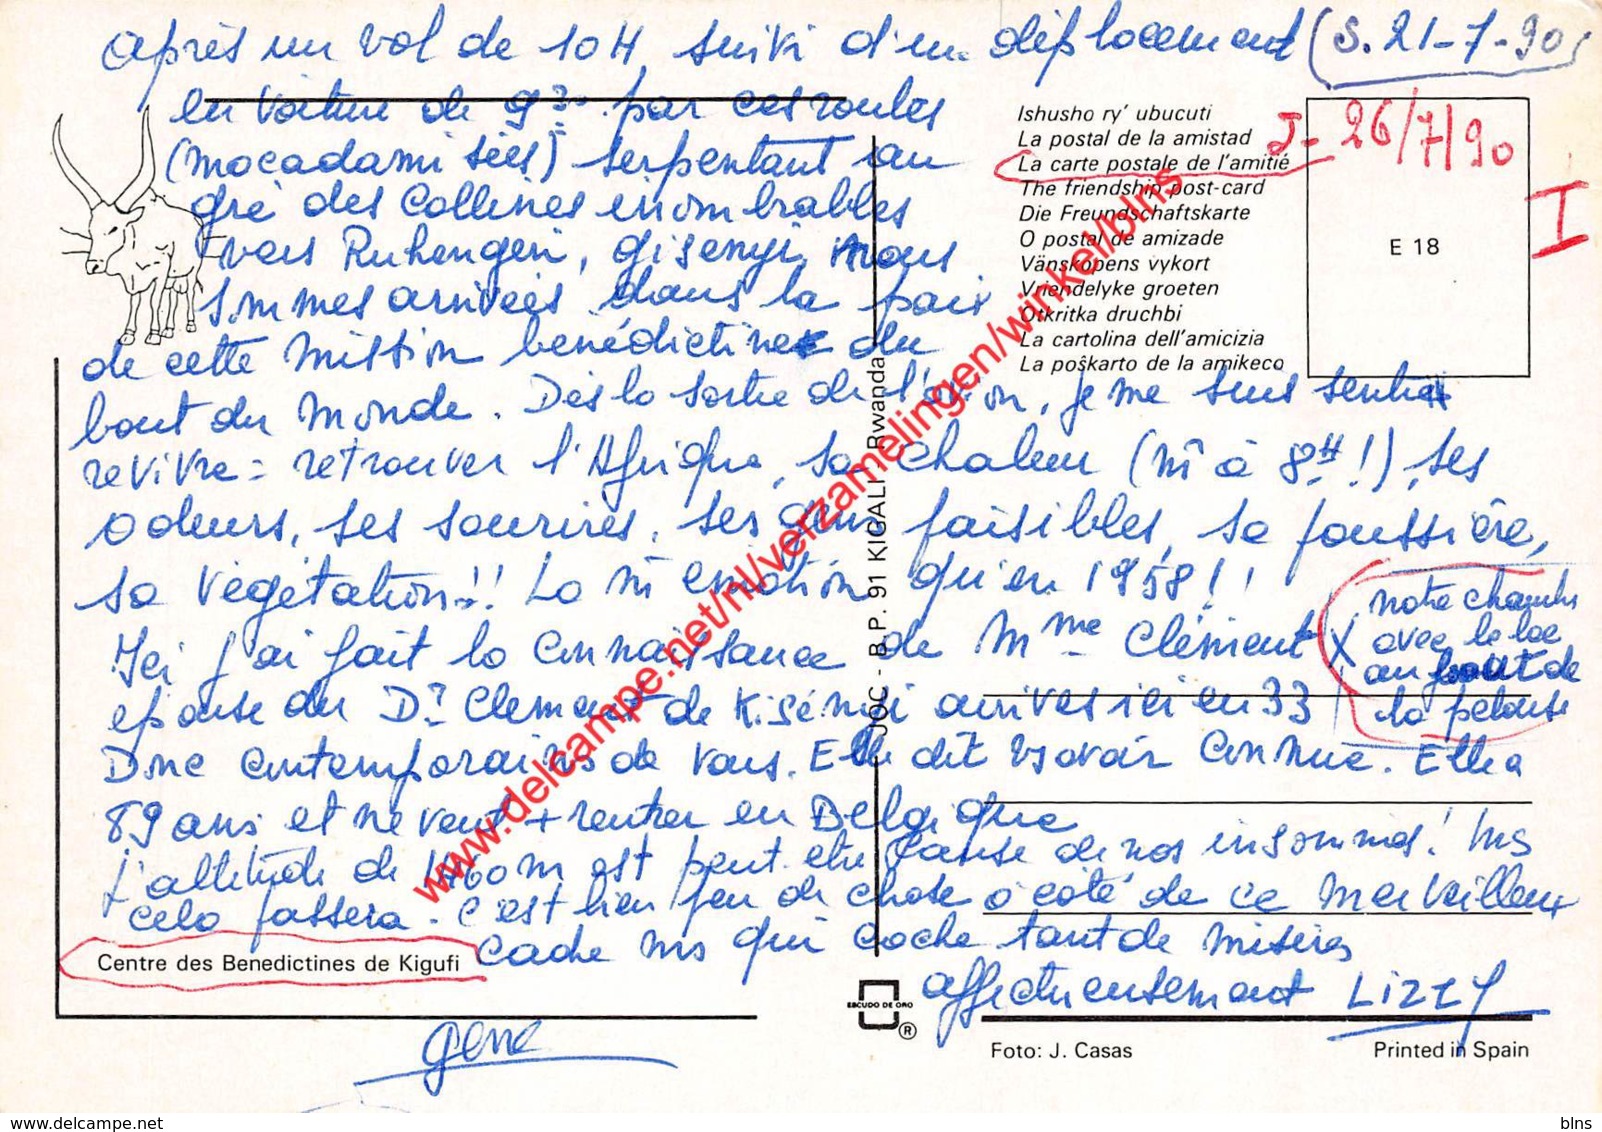 Après un vol de 10H, suivi d'un déplacement (S. 21-7-90)
en voiture de 9 par ces routes
(macadamisées) serpentant au
gré des Collines inombrables
vers Ruhengeri, Gisenyi, nous
sommes arrivées dans la paix
de cette mission bénédictine du
bout du monde. Dès la sortie de l'avion, je me suis sentie
revivre = retrouver l'Afrique, sa chaleur (m̄ à 8H !), ses
odeurs, ses sourires, ses gens paisibles, sa poussière,
sa végétation !! La m̄ émotion qu'en 1958 ! !
Ici j'ai fait la connaissance de Mme Clément X
épouse du Dr Clement de Kisényi arrivés ici en 33
Donc contemporains de vous. Elle dit v/avoir connue. Elle a
89 ans et ne veut + rentrer en Belgique
L'altitude de 1460m est peut être cause de nos insomnies ! Ms
cela passera. C'est bien peu de chose à côté de ce merveilleux
cache ms qui cache tant de misères
affectueusement Lizzy
gene
notre chambre
avec le lac
au bout de
la pelouse
J- 26/7/90
I
Ishusho ry' ubucuti
La postal de la amistad
La carte postale de l'amitié
The friendship post-card
Die Freundschaftskarte
O postal de amizade
Vänskopens vykort
Vriendelyke groeten
Otkritka druchbi
La cartolina dell'amicizia
La poŝkarto de la amikeco
E 18
JOC - B.P. 91 KIGALI Rwanda
Centre des Benedictines de Kigufi
ESCUDO DE ORO
®
Foto: J. Casas
Printed in Spain
www.delcampe.net/nl/verzamelingen/winkel/blns
blns